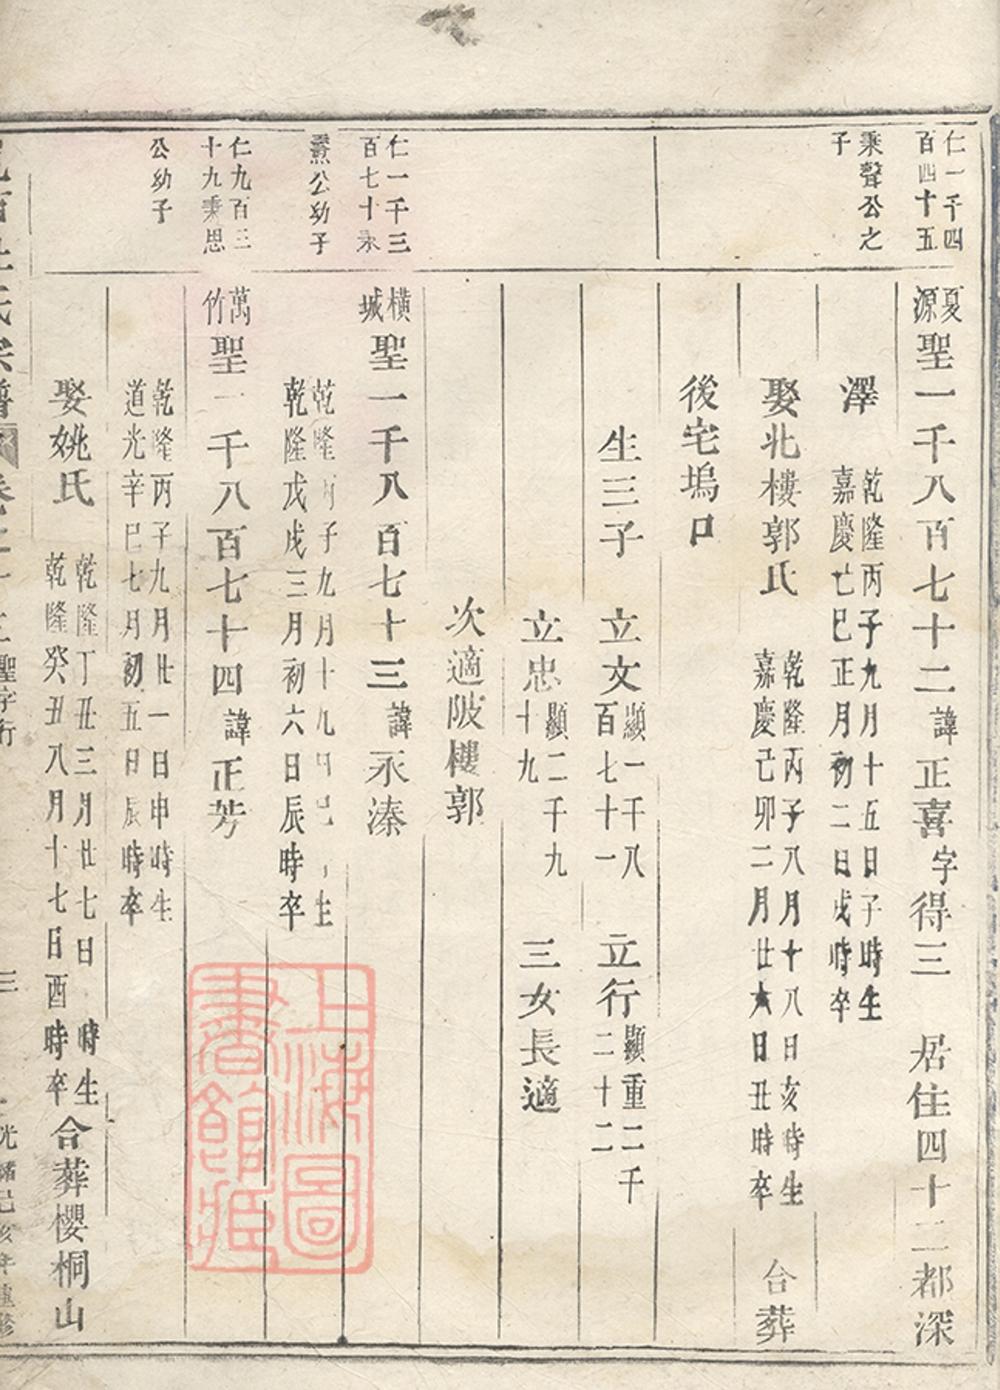 仁一千四
百四十五
秉聲公之
子
夏源聖一千八百七十二諱正喜字得三 居住四十二都深
澤 乾隆丙子九月十五日子時生
嘉慶乙巳正月初二日戌時卒
娶北樓郭氏 乾隆丙子八月十八日亥時生
嘉慶己卯二月廿六日丑時卒 合葬
後宅塢口
生三子 立文顯一千八百七十一 立行顯重二千二十二
立忠顯二千九十九 三女長適
次適陂樓郭
仁一千三
百七十
公幼子
橫城聖一千八百七十三諱永溱
乾隆丙子九月十九日巳時生
乾隆戊戌三月初六日辰時卒
仁九百三
十九秉思
公幼子
萬竹聖一千八百七十四諱正芳
乾隆丙子九月廿一日申時生
道光辛巳七月初五日辰時卒
娶姚氏 乾隆丁丑三月廿七日 時生
乾隆癸丑八月十七日酉時卒 合葬櫻桐山
宗譜 聖字行
三
光緒己亥年
上海圖書館藏